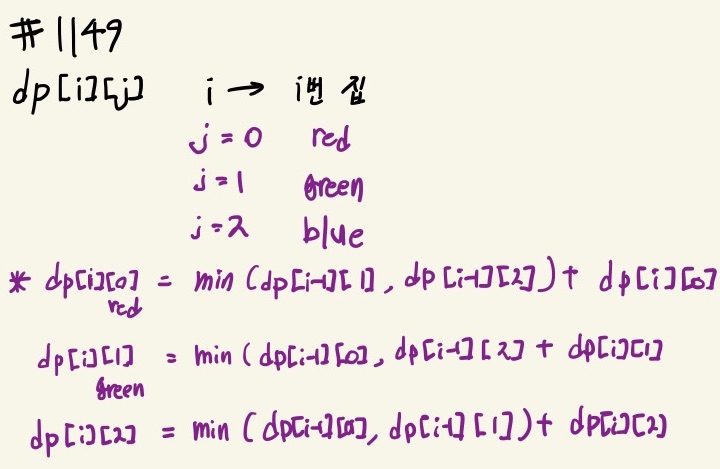 #1149
dp[i][j] i → i번 집
j = 0 red
j = 1 green
j = 2 blue
* dp[i][0] = min (dp[i-1][1], dp[i-1][2]) + dp[i][0]
red
dp[i][1] = min (dp[i-1][0], dp[i-1][2] + dp[i][1]
green
dp[i][2] = min (dp[i-1][0], dp[i-1][1]) + dp[i][2]